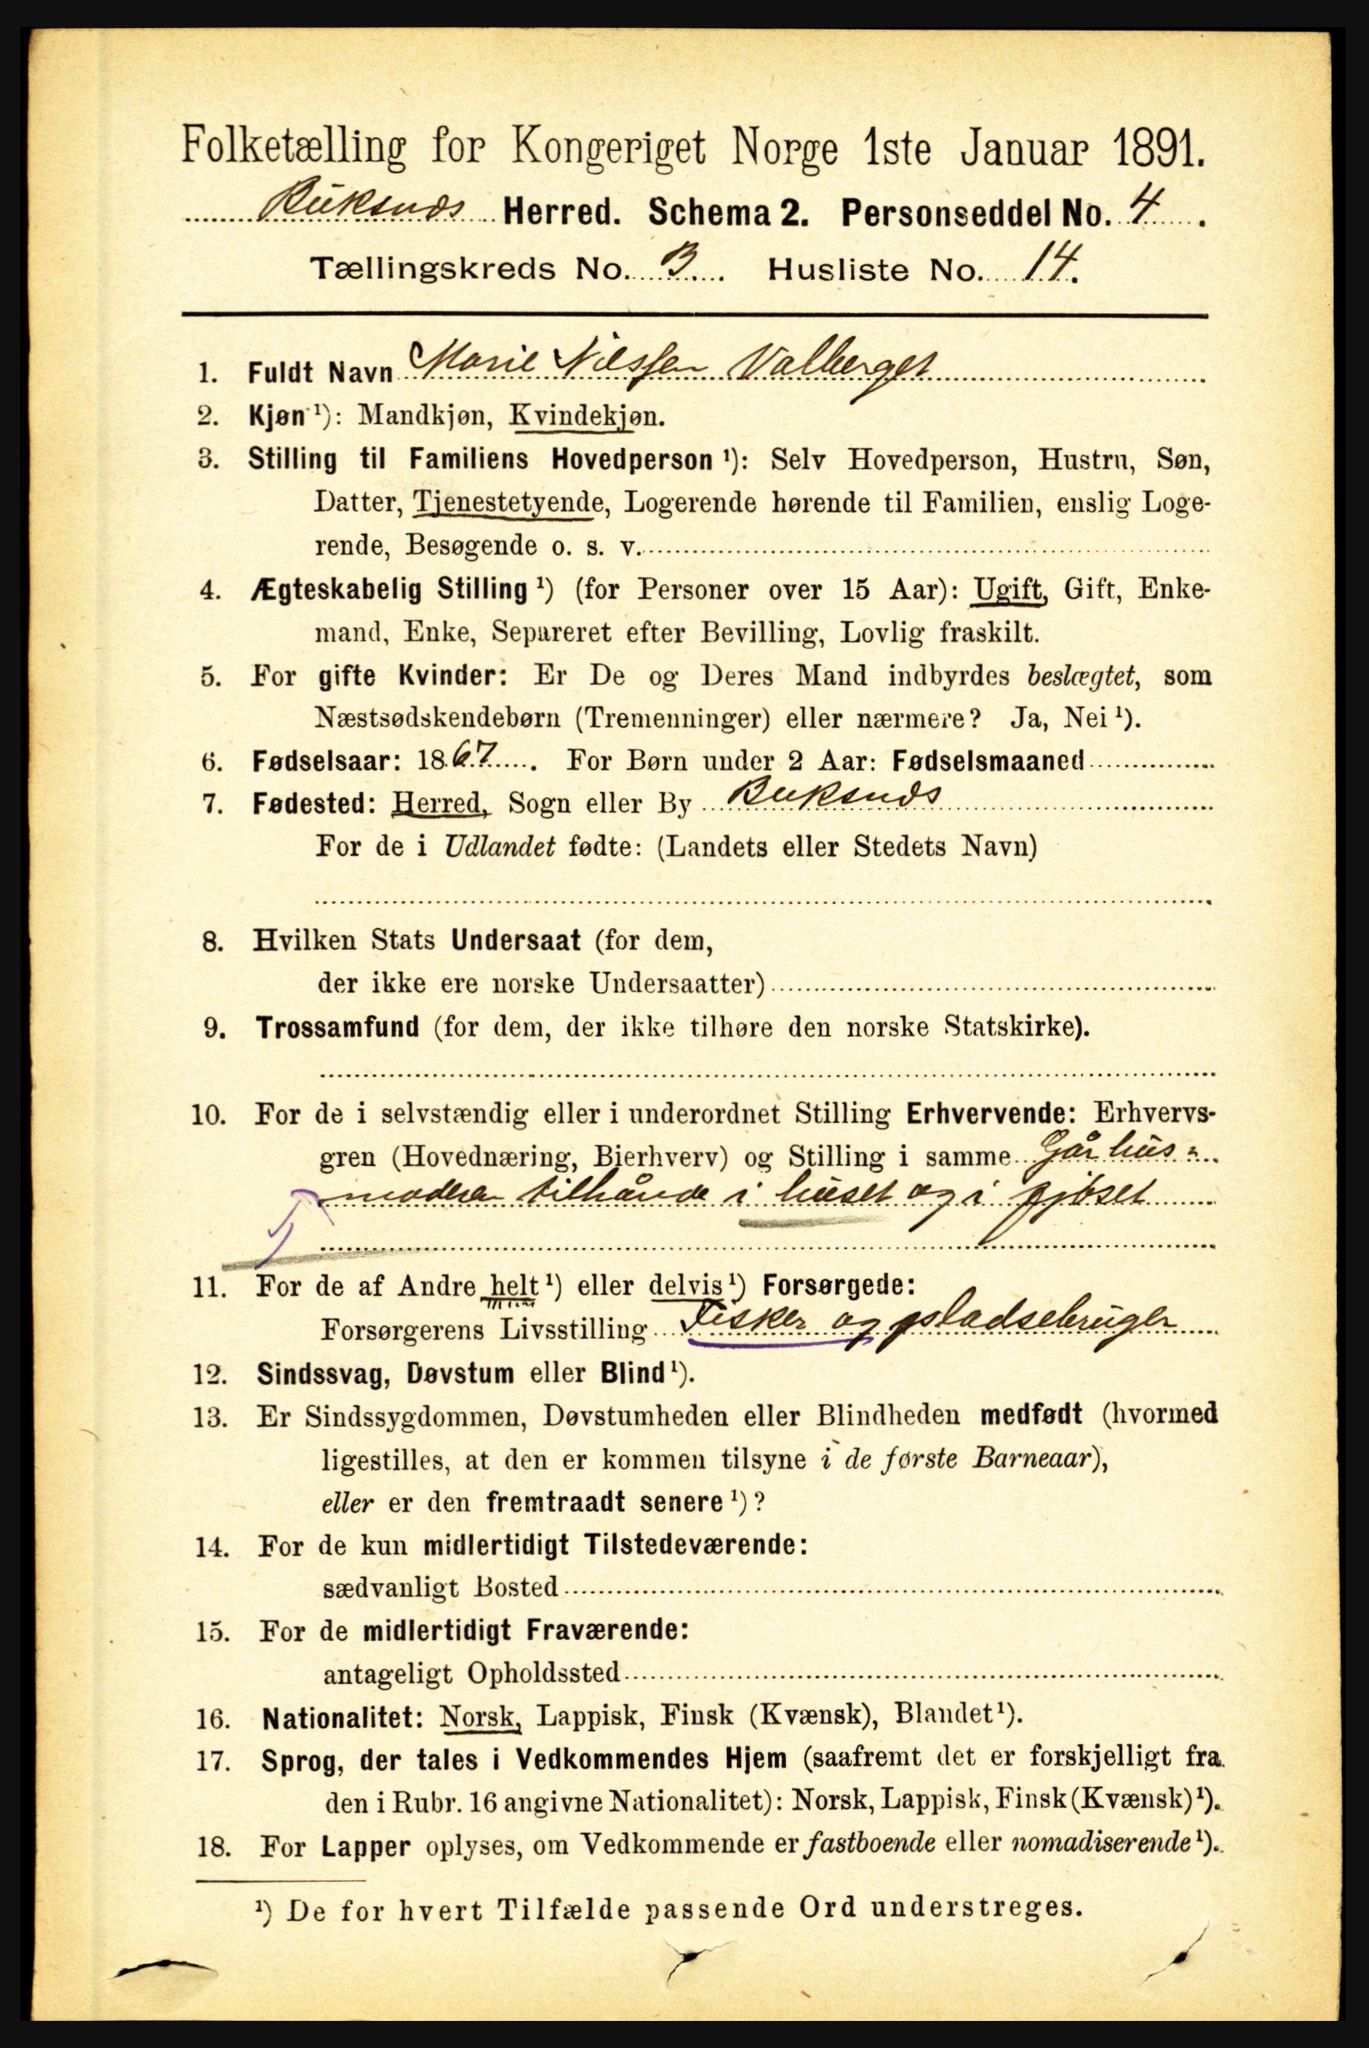 Folketælling for Kongeriget Norge 1ste Januar 1891.
Buksnæs Herred. Schema 2. Personseddel No. 4.
Tællingskreds No. 3. Husliste No. 14.
1. Fuldt Navn Marie Nilssen Valberget
2. Kjøn ¹): Mandkjøn, Kvindekjøn.
3. Stilling til Familiens Hovedperson ¹): Selv Hovedperson, Hustru, Søn,
Datter, Tjenestetyende, Logerende hørende til Familien, enslig Loge-
rende, Besøgende o. s. v.
4. Ægteskabelig Stilling ¹) (for Personer over 15 Aar): Ugift, Gift, Enke-
mand, Enke, Separeret efter Bevilling, Lovlig fraskilt.
5. For gifte Kvinder: Er De og Deres Mand indbyrdes beslægtet, som
Næstsødskendebørn (Tremenninger) eller nærmere? Ja, Nei ¹).
6. Fødselsaar: 1867. For Børn under 2 Aar: Fødselsmaaned
7. Fødested: Herred, Sogn eller By Buksnæs
For de i Udlandet fødte: (Landets eller Stedets Navn)
8. Hvilken Stats Undersaat (for dem,
der ikke ere norske Undersaatter)
9. Trossamfund (for dem, der ikke tilhøre den norske Statskirke).
10. For de i selvstændig eller i underordnet Stilling Erhvervende: Erhvervs-
gren (Hovednæring, Bierhverv) og Stilling i samme Går hus-
moderen tilhånde i huset og i fjøset
11. For de af Andre helt ¹) eller delvis ¹) Forsørgede:
Forsørgerens Livsstilling Fisker og pladsebruger
12. Sindssvag, Døvstum eller Blind ¹).
13. Er Sindssygdommen, Døvstumheden eller Blindheden medfødt (hvormed
ligestilles, at den er kommen tilsyne i de første Barneaar),
eller er den fremtraadt senere ¹)?
14. For de kun midlertidigt Tilstedeværende:
sædvanligt Bosted
15. For de midlertidigt Fraværende:
antageligt Opholdssted
16. Nationalitet: Norsk, Lappisk, Finsk (Kvænsk), Blandet ¹).
17. Sprog, der tales i Vedkommendes Hjem (saafremt det er forskjelligt fra
den i Rubr. 16 angivne Nationalitet): Norsk, Lappisk, Finsk (Kvænsk) ¹).
18. For Lapper oplyses, om Vedkommende er fastboende eller nomadiserende ¹).
¹) De for hvert Tilfælde passende Ord understreges.